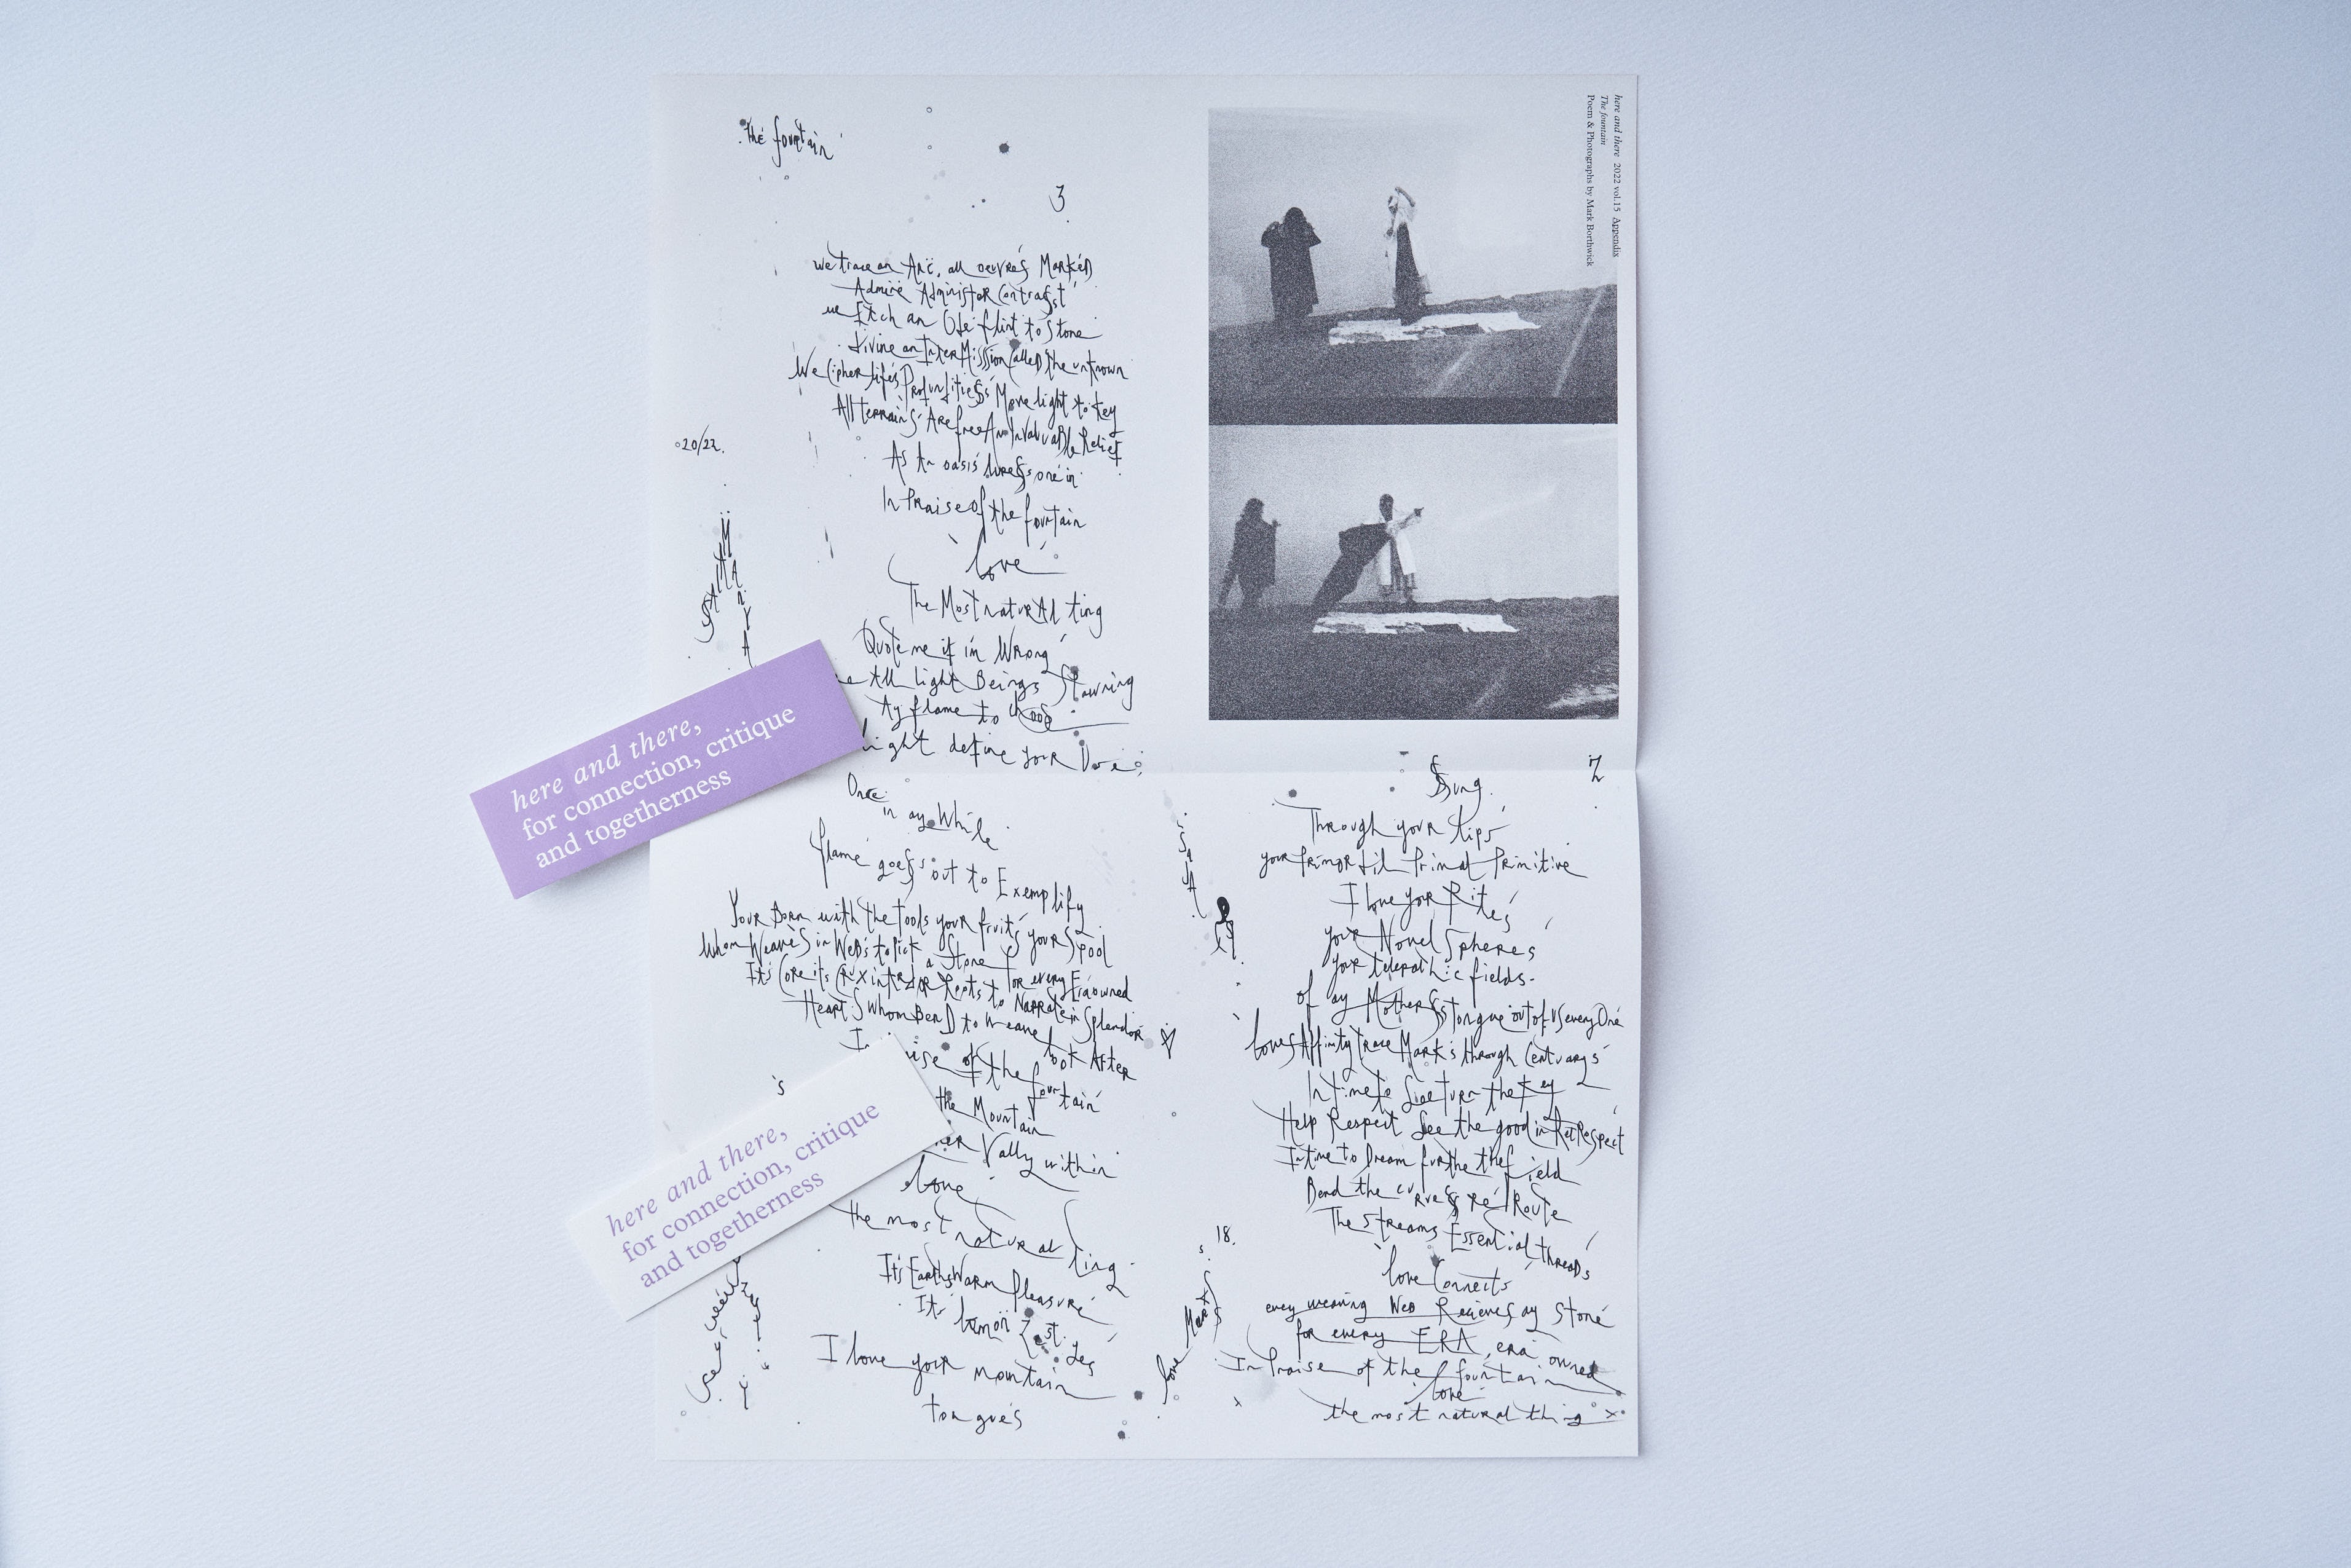 the fountain
3
we trace an Arc, all oeuvres Marked
Admire Administor Contrasst
we Etch an Ode flint to Stone
Divine an InterMisssion CalleD the unknown
We Cipher life's Profunditiesss More light to key
All terrains Are free An InValuABle Relief
As An oasis luresss one in
In Praise of the fountain
love
The Most naturAl ting
Quote me if im Wrong
All light Beings Spawning
Ay flame to
light define your
20/22.
here and there,
for connection, critique
and togetherness
Once
in ay While
flame goesss out to Exemplify
Your Born with the tools your fruits your Spool
Whom Weaves in WeBs to Pick a Stone for every Era owned
It's Core its Crux interior Roots to Narrate in Splendor
Hearts Whom BenD to Weave look After
of the fountain
the Mountain
Vally within
love
the most natural ting
It's Earths Warm Pleasure
Its lemon Zest yes
I love your mountain
tongues
's
here and there,
for connection, critique
and togetherness
here and there 2022 vol.15 Appendix
The fountain
Poem & Photographs by Mark Borthwick
2
Sung
Through your lips
your Primortil Primal Primitive
I love your Rites
your Novel Spheres
your telepathic fields.
of ay Mothersss tongue out of us every One
loves Affinity trace Marks through Centuarys
In time to turn the key
Help Respect See the good in RetRespect
In time to Dream furthe the field
Bend the curvesss re Route
The streams Essential threaDs
love Connects
every weaving WeB Recieves ay Stone
for every ERA, era owned
In Praise of the fountain
love
the most natural thing x
18.
love Mark